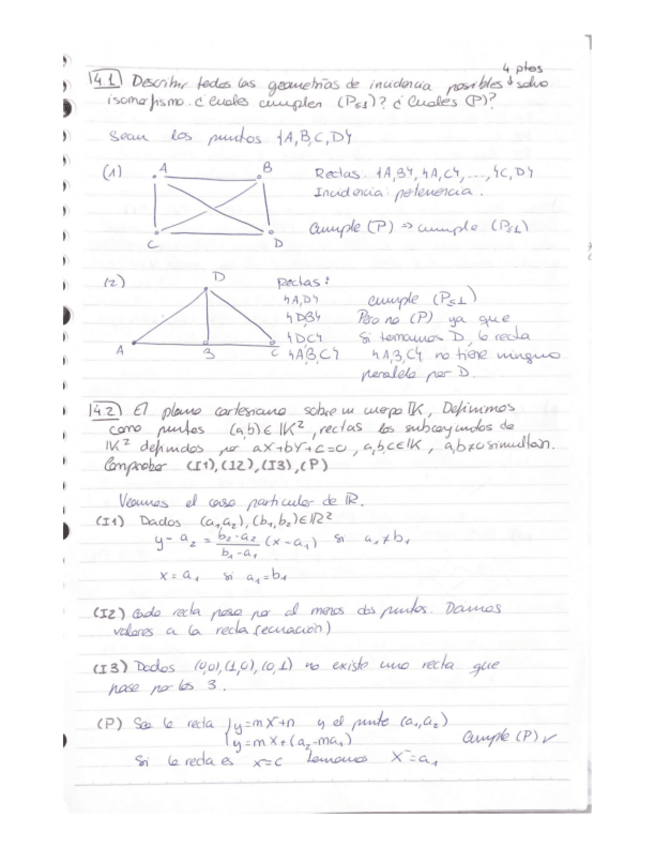 4 ptos
14.1 Describir todas las geometrías de incidencia posibles ↓ salvo
isomorfismo. ¿Cuales cumplen (P≤1)? ¿Cuales (P)?
Sean los puntos {A,B,C,D}
(1) A B Rectas. {A,B}, {A,C}, ..., {C,D}
Incidencia: pertenencia.
C D Cumple (P) ⇒ cumple (P≤1)
(2) D Rectas:
{A,D} cumple (P≤1)
{D,B} Pero no (P) ya que
{D,C} Si tomamos D, la recta
A B C {A,B,C} {A,B,C} no tiene ninguna
paralela por D.
14.2 El plano cartesiano sobre un cuerpo IK, Definimos
como puntos (a,b) ∈ IK², rectas los subconjuntos de
IK² definidos por aX+bY+c=0, a,b,c∈IK, a,b≠0 simultán.
Comprobar (I1),(I2),(I3),(P)
Veamos el caso particular de IR.
(I1) Dados (a₁,a₂),(b₁,b₂)∈IR²
y-a₂ = (b₂-a₂)/(b₁-a₁) (x-a₁) si a₁≠b₁
x=a₁ si a₁=b₁
(I2) Cada recta pasa por al menos dos puntos. Damos
valores a la recta (ecuación)
(I3) Dados (0,0),(1,0),(0,1) no existe una recta que
pase por los 3.
(P) Sea la recta { y=mx+n y el punto (a₁,a₂)
y=mx+(a₂-ma₁) Cumple (P) ✓
Si la recta es x=c tomamos x=a₁